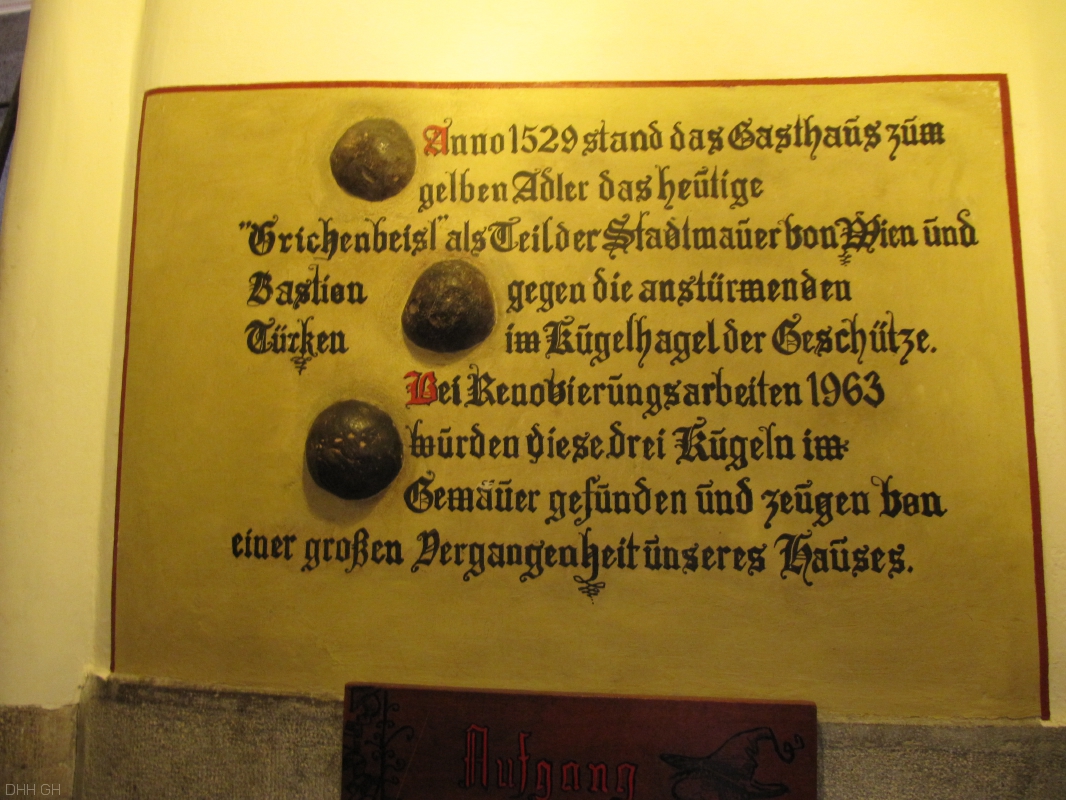 Anno 1529 stand das Gasthaus zum
gelben Adler das heutige
"Grichenbeisl" als Teil der Stadtmauer von Wien und
Bastion gegen die anstürmenden
Türken im Kugelhagel der Geschütze.
Bei Renovierungsarbeiten 1963
wurden diese drei Kugeln im
Gemäuer gefunden und zeugen von
einer großen Vergangenheit unseres Hauses.
Aufgang
DHH GH